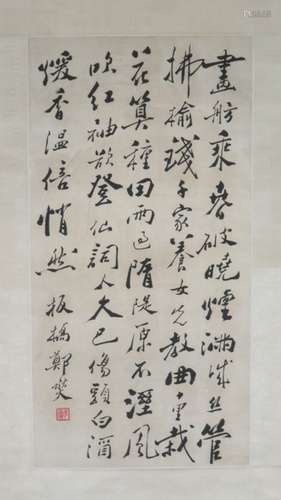 畫舫乘春破曉煙滿城絲管
拂榆錢千家養女先教曲十里栽
花算種田雨過隋隄原不溼風
吹紅袖欲登仙詞人久已傷頭白酒
煖香温倍悄然 板橋鄭燮